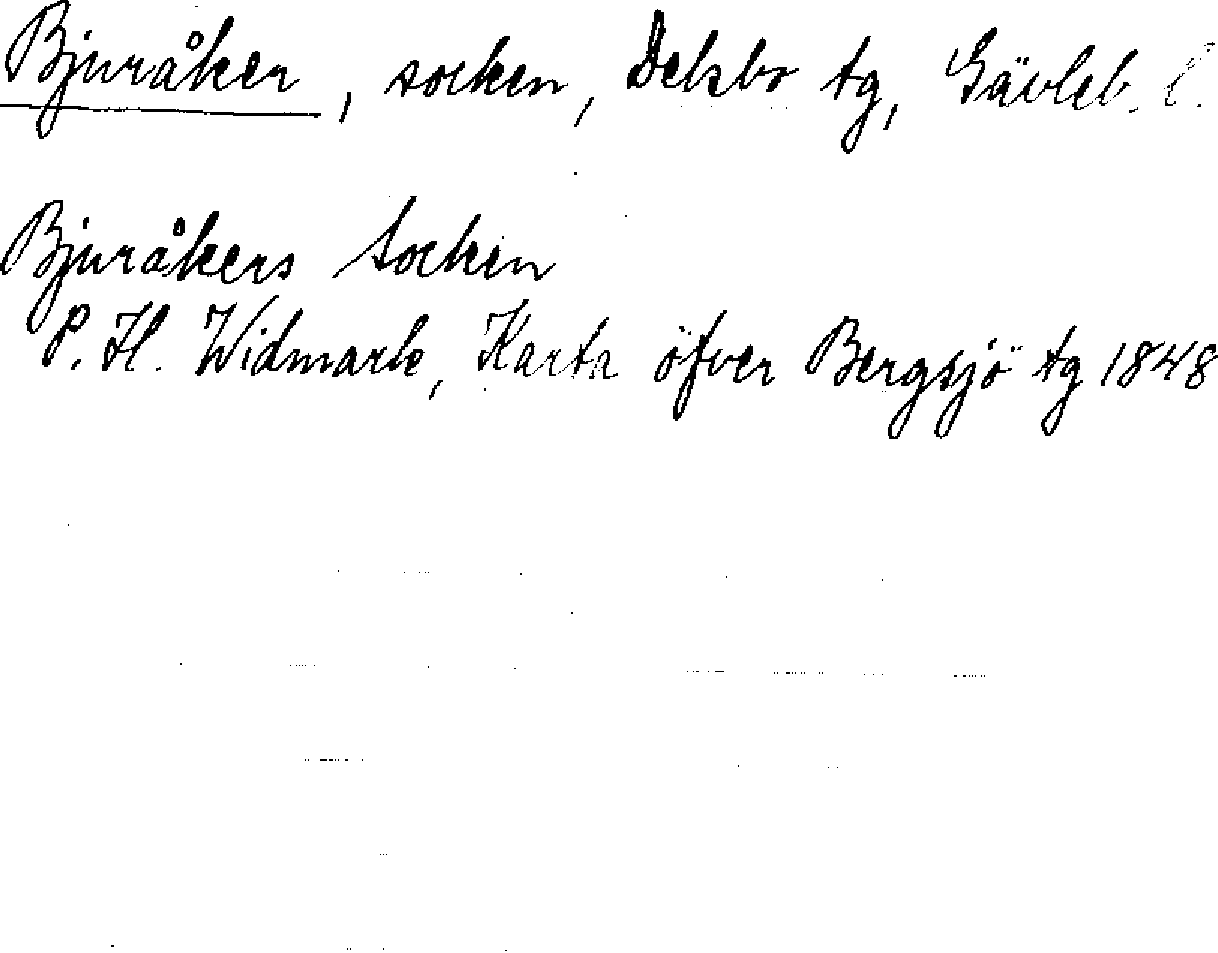 Bjuråker, socken, Delsbo tg, Gävleb. l.
Bjuråkers Socken
P. H. Widmark, Karta öfver Bergsjö tg 1848